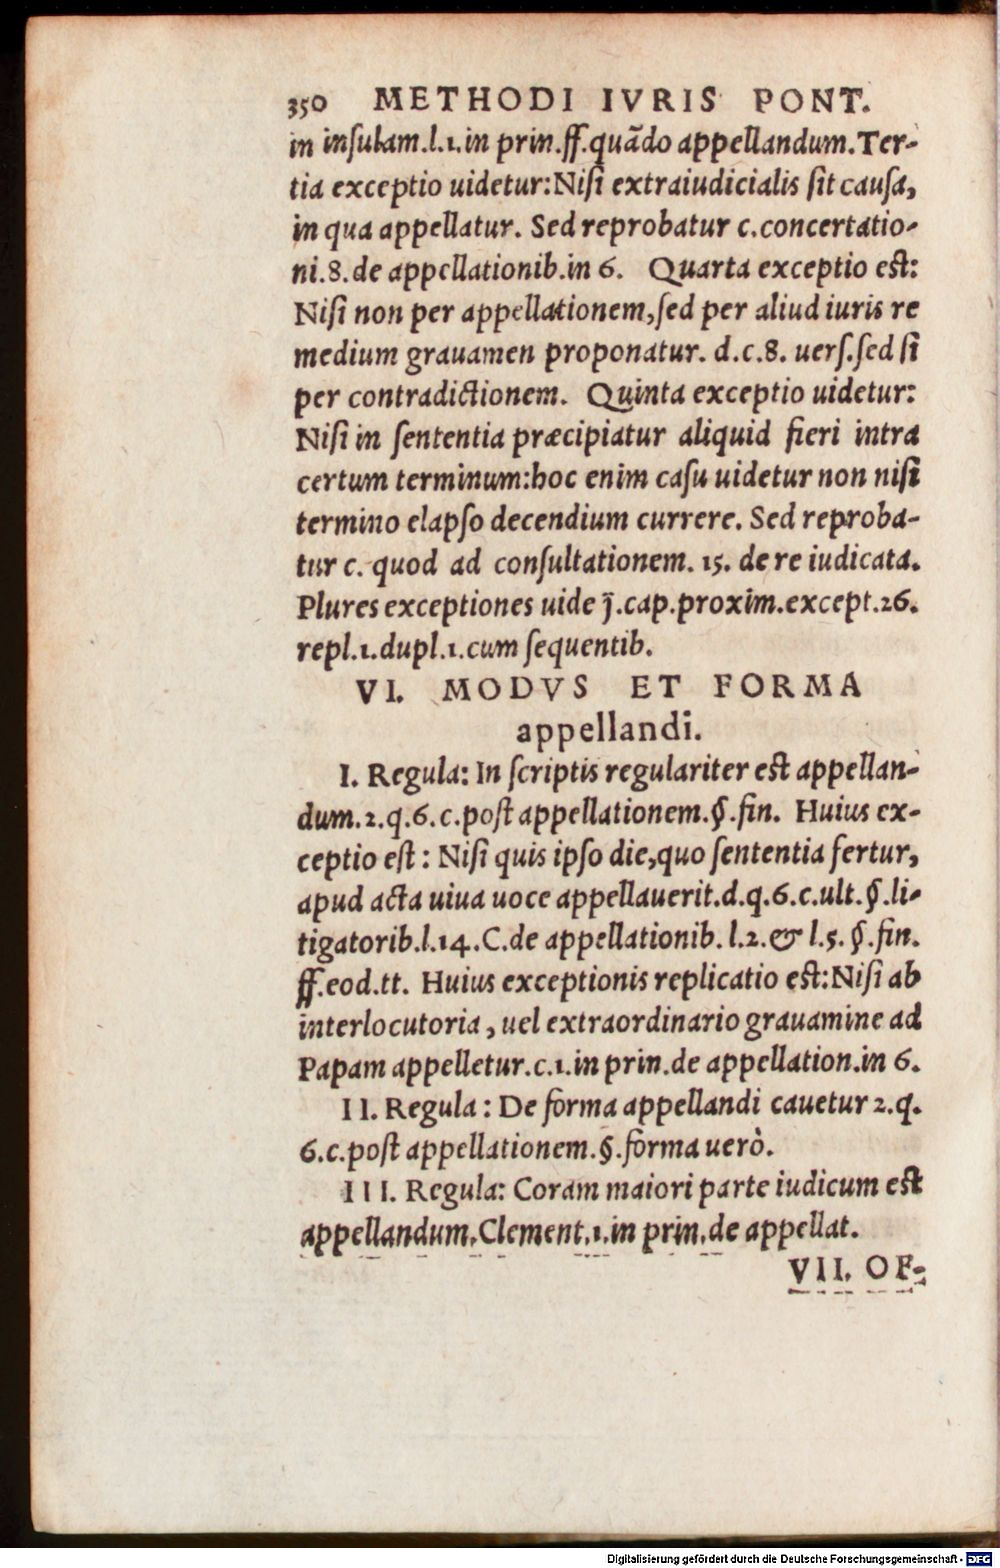 350 METHODI IVRIS PONT.
in inſulam.l.1.in prin.ff.quãdo appellandum.Ter-
tia exceptio uidetur:Niſi extraiudicialis ſit cauſa,
in qua appellatur. Sed reprobatur c.concertatio-
ni.8.de appellationib.in 6. Quarta exceptio eſt:
Niſi non per appellationem,ſed per aliud iuris re
medium grauamen proponatur. d.c.8. uerſ.ſed ſi
per contradictionem. Quinta exceptio uidetur:
Niſi in ſententia præcipiatur aliquid fieri intra
certum terminum:hoc enim caſu uidetur non niſi
termino elapſo decendium currere. Sed reproba-
tur c. quod ad conſultationem. 15. de re iudicata.
Plures exceptiones uide j̃.cap.proxim.except.26.
repl.1.dupl.1.cum ſequentib.
VI. MODVS ET FORMA
appellandi.
I. Regula: In ſcriptis regulariter eſt appellan-
dum.2.q.6.c.poſt appellationem.§.fin. Huius ex-
ceptio eſt: Niſi quis ipſo die,quo ſententia fertur,
apud acta uiua uoce appellauerit.d.q.6.c.ult.§.li-
tigatorib.l.14.C.de appellationib. l.2.& l.5. §.fin.
ff.eod.tt. Huius exceptionis replicatio eſt:Niſi ab
interlocutoria, uel extraordinario grauamine ad
Papam appelletur.c.1.in prin.de appellation.in 6.
II. Regula: De forma appellandi cauetur 2.q.
6.c.poſt appellationem.§.forma uerò.
III. Regula: Coram maiori parte iudicum eſt
appellandum.Clement.1.in prin.de appellat.
VII. OF-
Digitalisierung gefördert durch die Deutsche Forschungsgemeinschaft - DFG